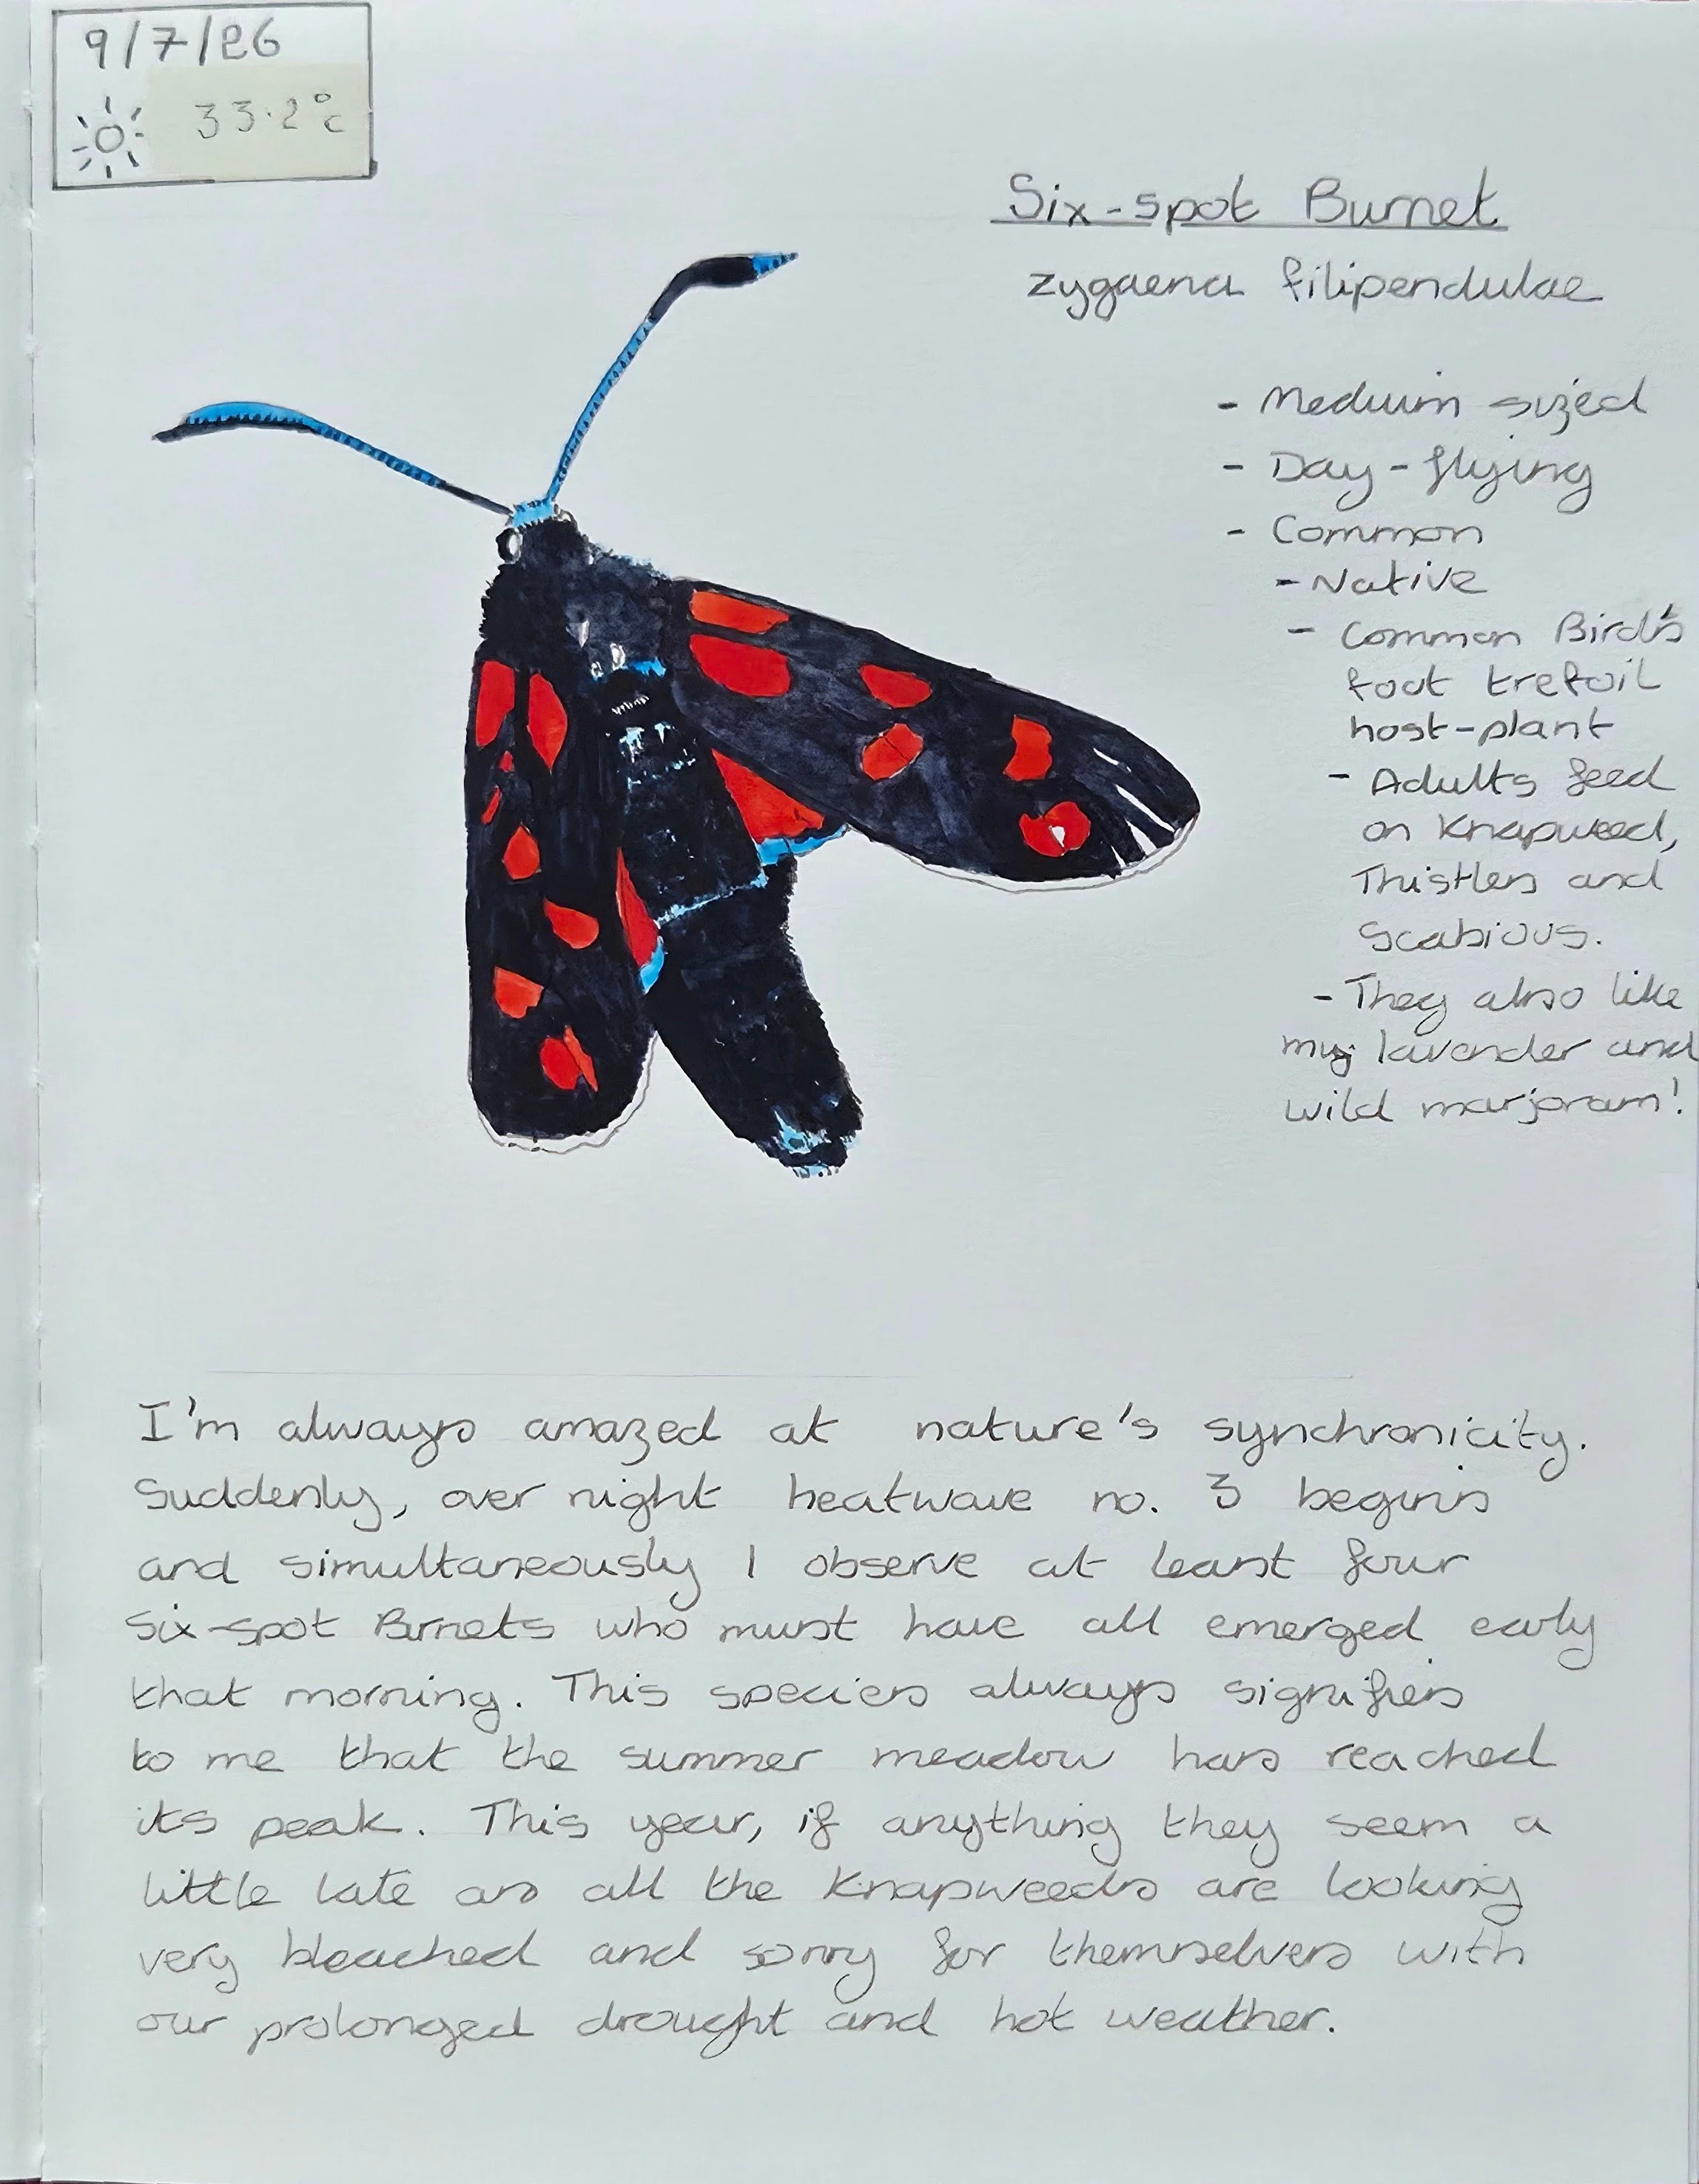 9/7/26
33.2°c
Six-spot Burnet
zygaena filipendulae
- Medium sized
- Day-flying
- Common
- Native
- Common Bird's
foot trefoil
host-plant
- Adults feed
on Knapweed,
Thistles and
Scabious.
- They also like
my lavender and
wild marjoram!
I'm always amazed at nature's synchronicity.
Suddenly, over night heatwave no. 3 begins
and simultaneously I observe at least four
Six-spot Burnets who must have all emerged early
that morning. This species always signifies
to me that the summer meadow has reached
its peak. This year, if anything they seem a
little late as all the Knapweeds are looking
very bleached and sorry for themselves with
our prolonged drought and hot weather.